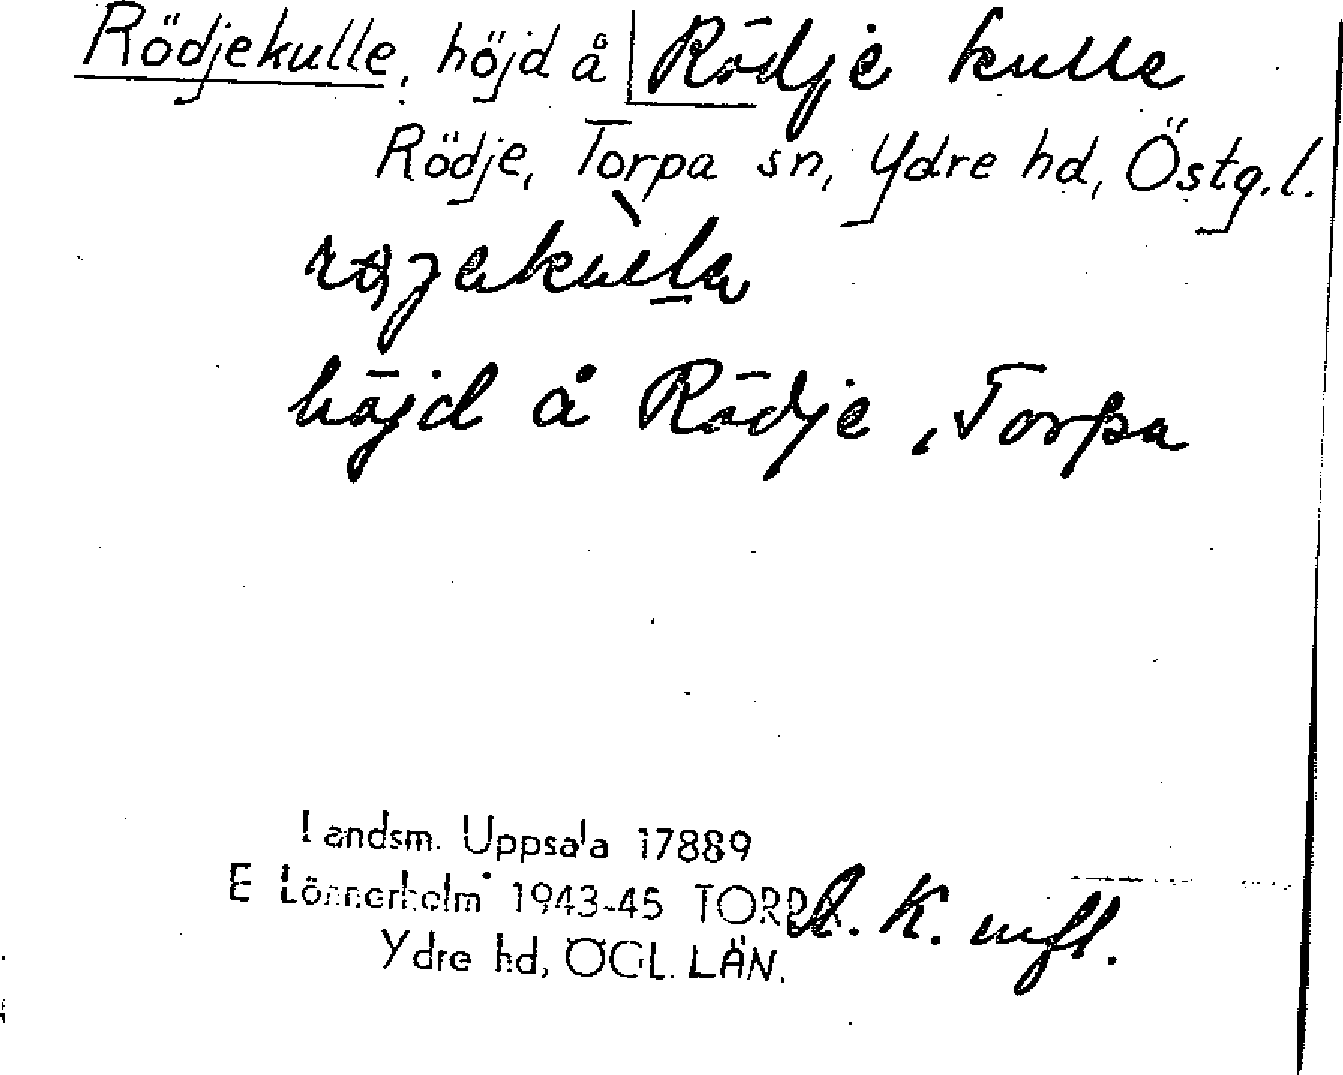 Rödjekulle, höjd å Rödje kulle
Rödje, Torpa sn, Ydre hd, Östg.l.
höjd å Rödje, Torpa
Landsm. Uppsala 17889
E Lönnerholm 1943-45 TORPA K. mfl.
Ydre hd, ÖGL. LÄN.